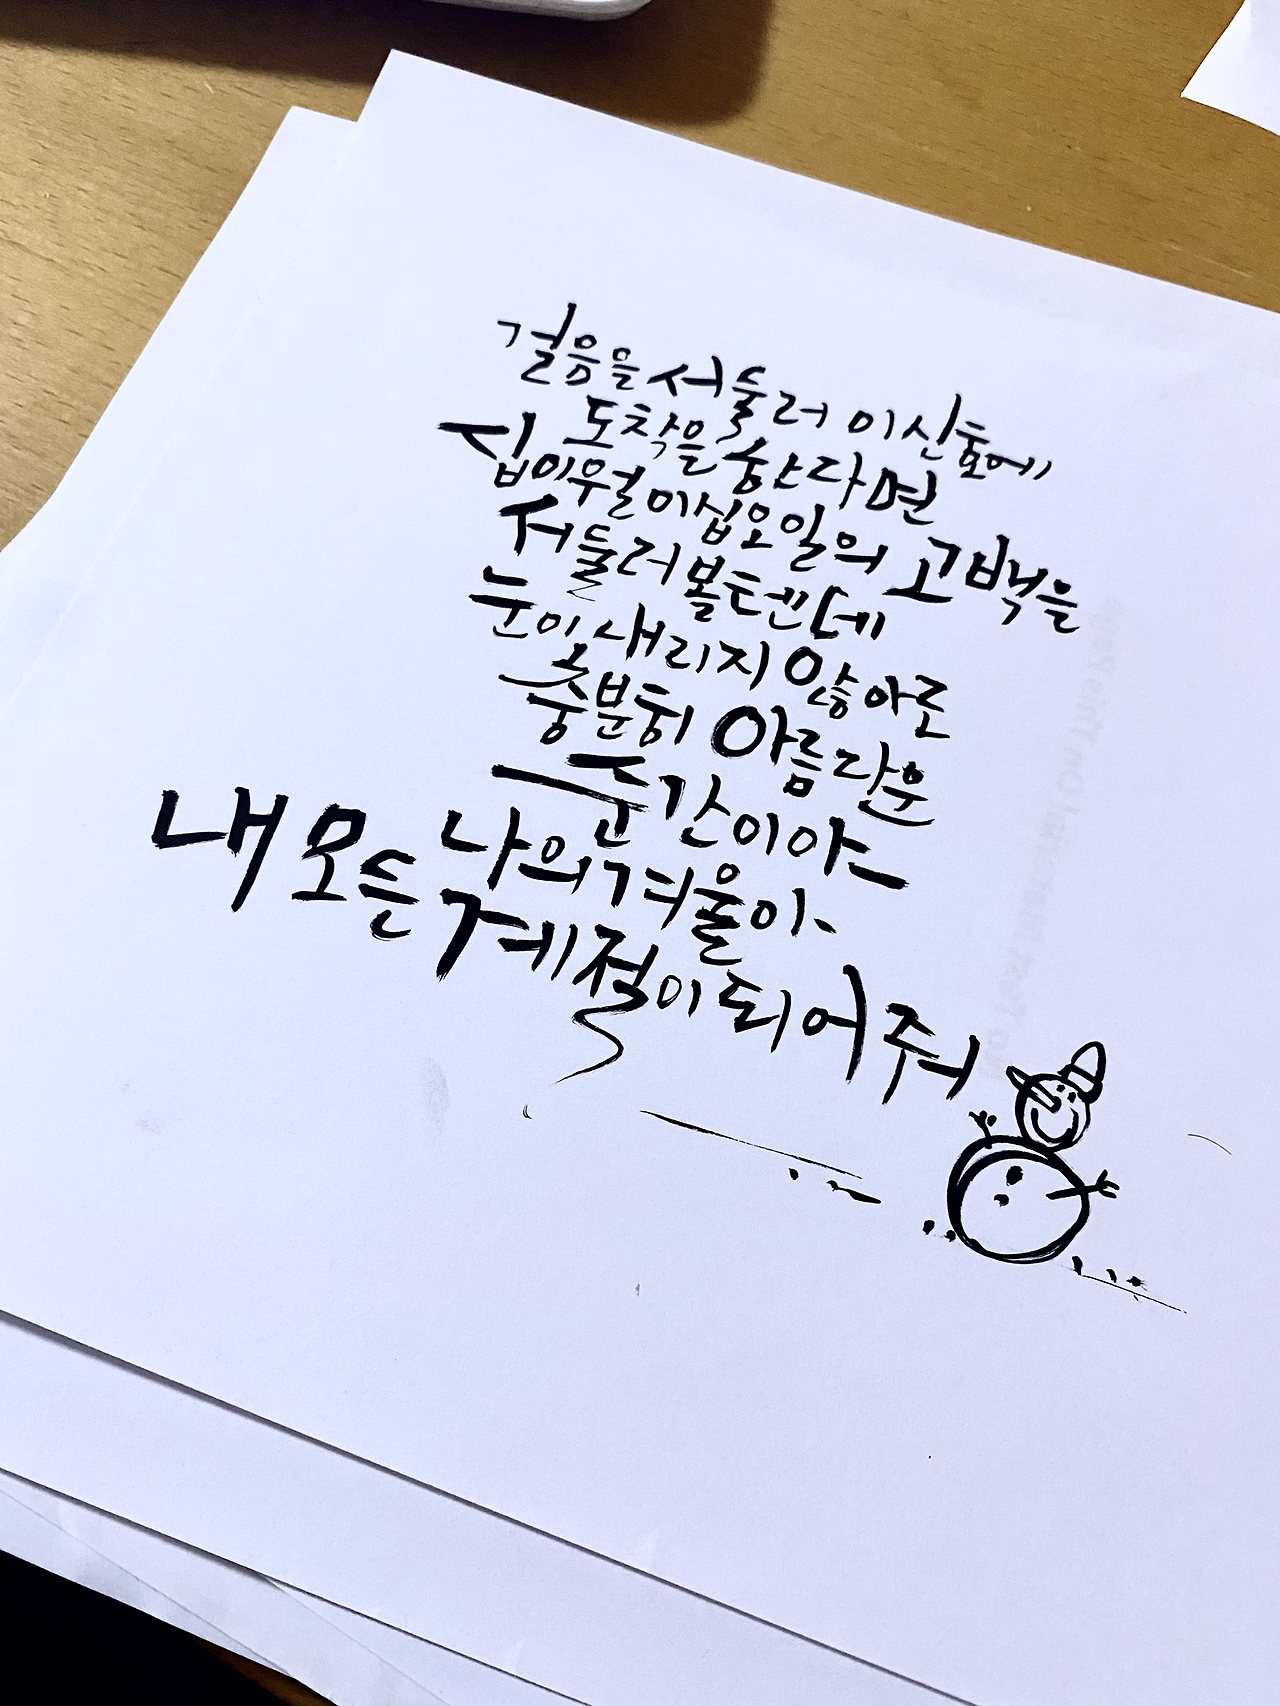 걸음을 서둘러 이 신호에
도착을 한다면
십이월 이십오일의 고백을
서둘러 볼 텐데
눈이 내리지 않아도
충분히 아름다운
순간이야
나의 겨울아
내 모든 계절이 되어줘